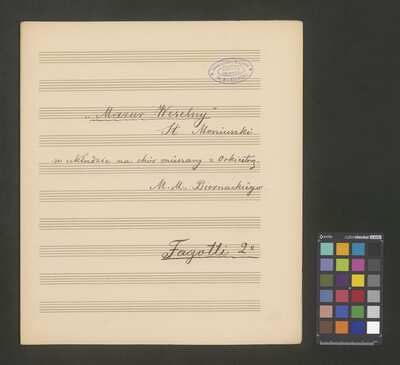 „Mazur Weselny"
St. Moniuszki
w układzie na chór mieszany z Orkiestrą
M. M. Biernackiego
Fagotti 2º